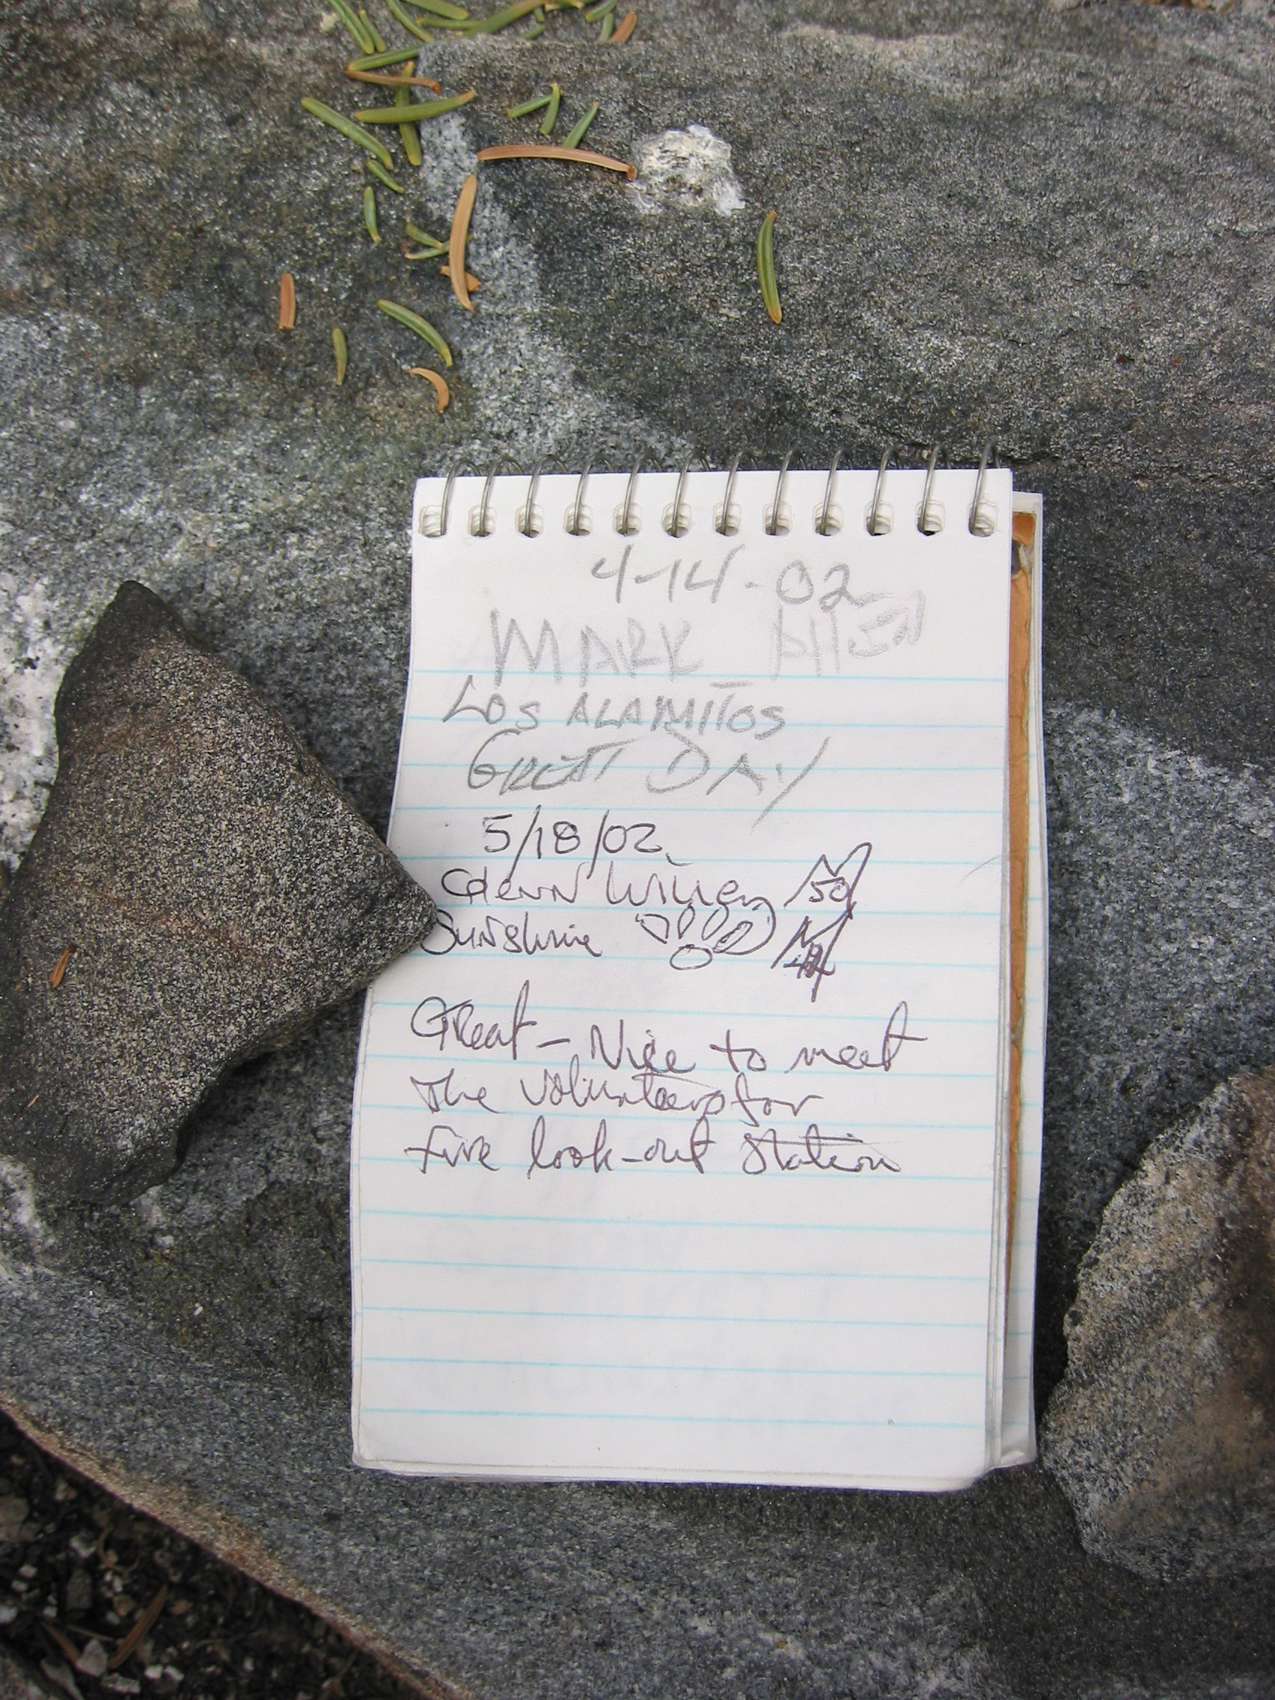 4-14-02
MARK Allen
LOS ALAMITOS
GREAT DAY
5/18/02
Glenn 50
Sunshine
Great - Nice to meet
the volunteers for
fire look-out station